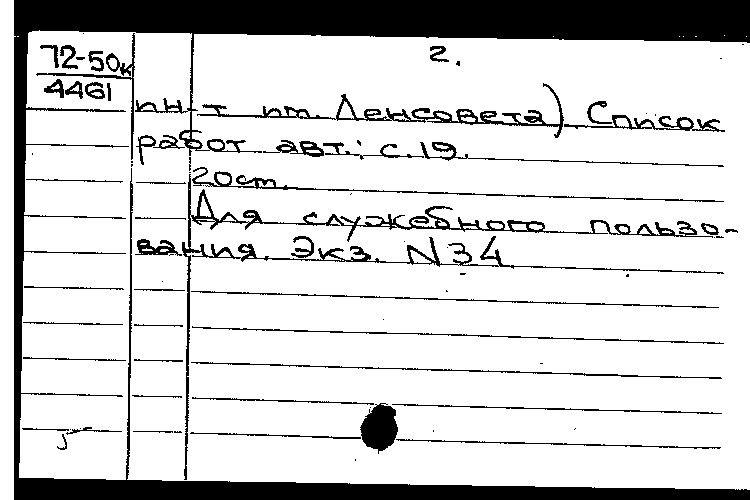 72-50к
4461
2.
ин-т им. Ленсовета) Список
работ авт.: с.19.
20см.
Для служебного пользо-
вания. Экз. N34